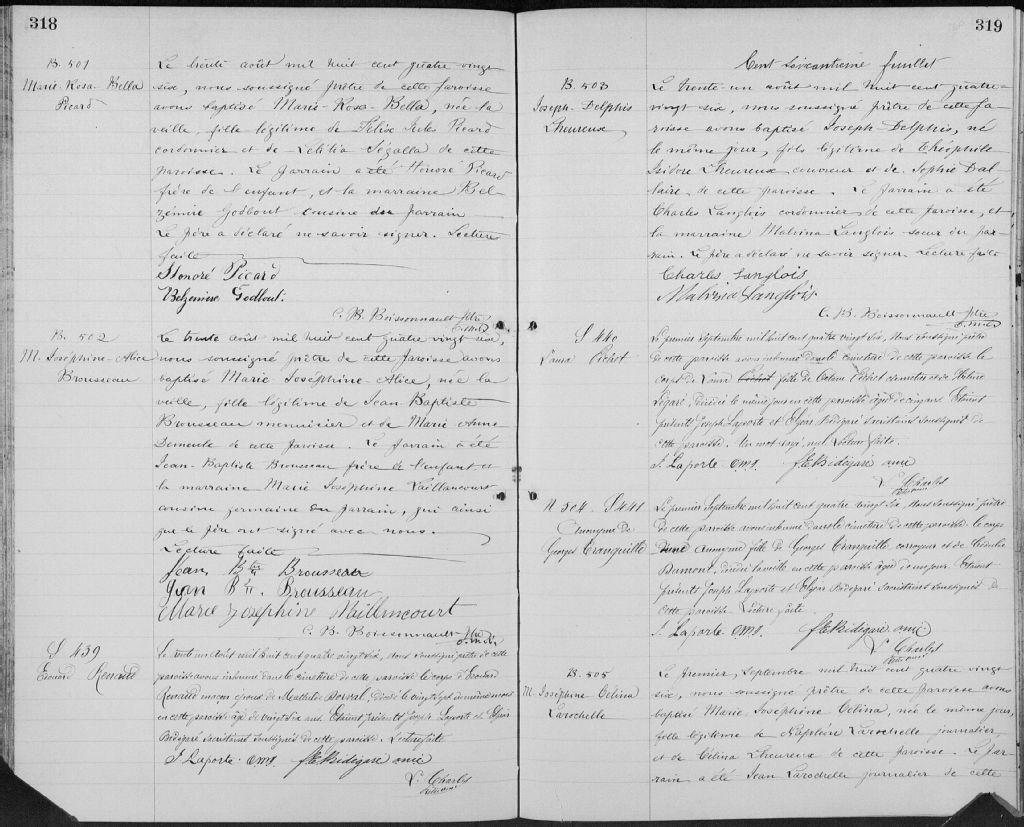 318
B. 501
Marie-Rosa-Bella
Picard
Le trente août mil huit cent quatre vingt
six, nous soussigné prêtre de cette paroisse
avons baptisé Marie-Rosa-Bella, née la
veille, fille légitime de Félix Jules Picard
cordonnier et de Létitia Ségalla de cette
paroisse. Le parrain a été Honoré Picard
frère de l'enfant, et la marraine Bel
zémire Godbout cousine du parrain
Le père a déclaré ne savoir signer. Lecture
faite
Honoré Picard
Belzemire Godbout.
C. B. Boissonnault Ptre
o.m.i.
B. 502
M. Joséphine-Alice
Brousseau
Le trente août mil huit cent quatre vingt six,
nous soussigné prêtre de cette paroisse avons
baptisé Marie Joséphine-Alice, née la
veille, fille légitime de Jean-Baptiste
Brousseau menuisier et de Marie Anne
de cette paroisse. Le parrain a été
Jean-Baptiste Brousseau frère de l'enfant et
la marraine Marie Joséphine Vaillancourt
cousine germaine du parrain, qui ainsi
que le père ont signé avec nous.
Lecture faite
Jean Bte Brousseau
Jean Bte. Brousseau
Marie Josephine Vaillancourt
C. B. Boissonnault Ptre
o.m.i.
S 439
Edouard Renaud
Le trente un Août mil huit cent quatre vingt six, nous soussigné prêtre de cette
paroisse avons inhumé dans le cimetière de cette paroisse le corps d'Edouard
Renaud maçon époux de Mathilde, décédé le vingt sept du même mois
en cette paroisse âgé de vingt six ans. Etaient présents Joseph Laporte et Elzéar
Bédégaré Sacristains soussignés de cette paroisse. Lecture faite
J. Laporte. oms. f. E. Bédégaré omi
L. Charles
319
Cent soixantième feuillet
B. 503
Joseph-Delphis
Lheureux
Le trente-un août mil huit cent quatre-
vingt six, nous soussigné prêtre de cette pa-
roisse avons baptisé Joseph-Delphis, né
le même jour, fils légitime de Théophile
Isidore Lheureux couvreur et de Sophie Dal-
laire de cette paroisse. Le parrain a été
Charles Langlois cordonnier de cette paroisse, et
la marraine Malvina Langlois sœur du par-
rain. Le père a déclaré ne savoir signer. Lecture faite
Charles Langlois
Malvina Langlois
C. B. Boissonnault Ptre
o.m.i.
S 440
Laura Pichet
Le premier Septembre mil huit cent quatre vingt six, nous soussigné prêtre
de cette paroisse avons inhumé dans le cimetière de cette paroisse le
corps de Laura fille de Pichet et de
Légaré, décédée le même jour en cette paroisse âgée de cinq ans. Etaient
présents Joseph Laporte et Elzéar Bédégaré Sacristains soussignés de
cette paroisse. Un mot rayé, nul. Lecture faite.
J. Laporte. oms. f. E. Bédégaré omi
L. Charles
N 504. S 441
Anonyme de
Georges Tranquille
Le premier Septembre mil huit cent quatre vingt six, nous soussigné prêtre
de cette paroisse avons inhumé dans le cimetière de cette paroisse le corps
d'une Anonyme fille de Georges Tranquille corroyeur et de
Dumont, décédée la veille en cette paroisse âgée d'un jour. Etaient
présents Joseph Laporte et Elzéar Bédégaré Sacristains soussignés de
cette paroisse. Lecture faite.
J. Laporte oms. f. E. Bédégaré omi
L. Charles
B. 505
M. Joséphine Célina
Larochelle
Le premier Septembre mil huit cent quatre vingt-
six, nous soussigné prêtre de cette paroisse avons
baptisé Marie Joséphine Célina, née le même jour,
fille légitime de Naplien Larochelle journalier
et de Célina Lheureux de cette paroisse. Le par-
rain a été Jean Larochelle journalier de cette